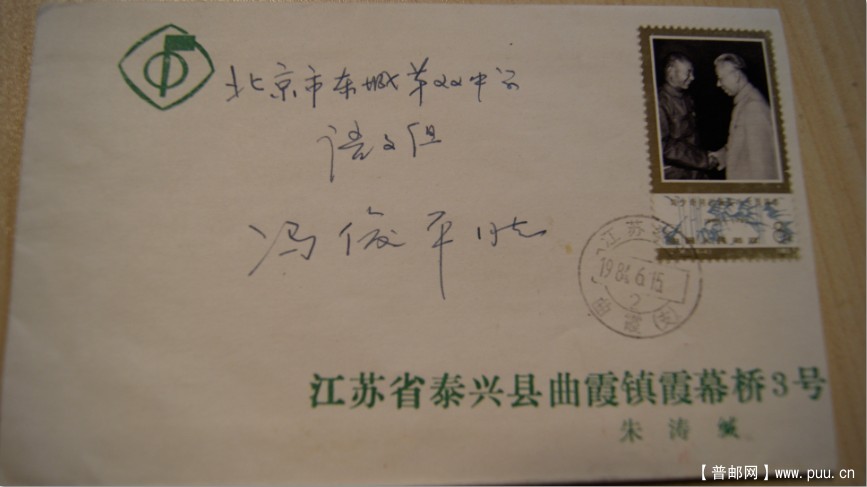 北京市东城第双中学
语文组
冯俊平同志
江苏
1984.6.15
2
曲霞(支)
江苏省泰兴县曲霞镇霞幕桥3号
朱涛缄
【普邮网】www.puu.cn